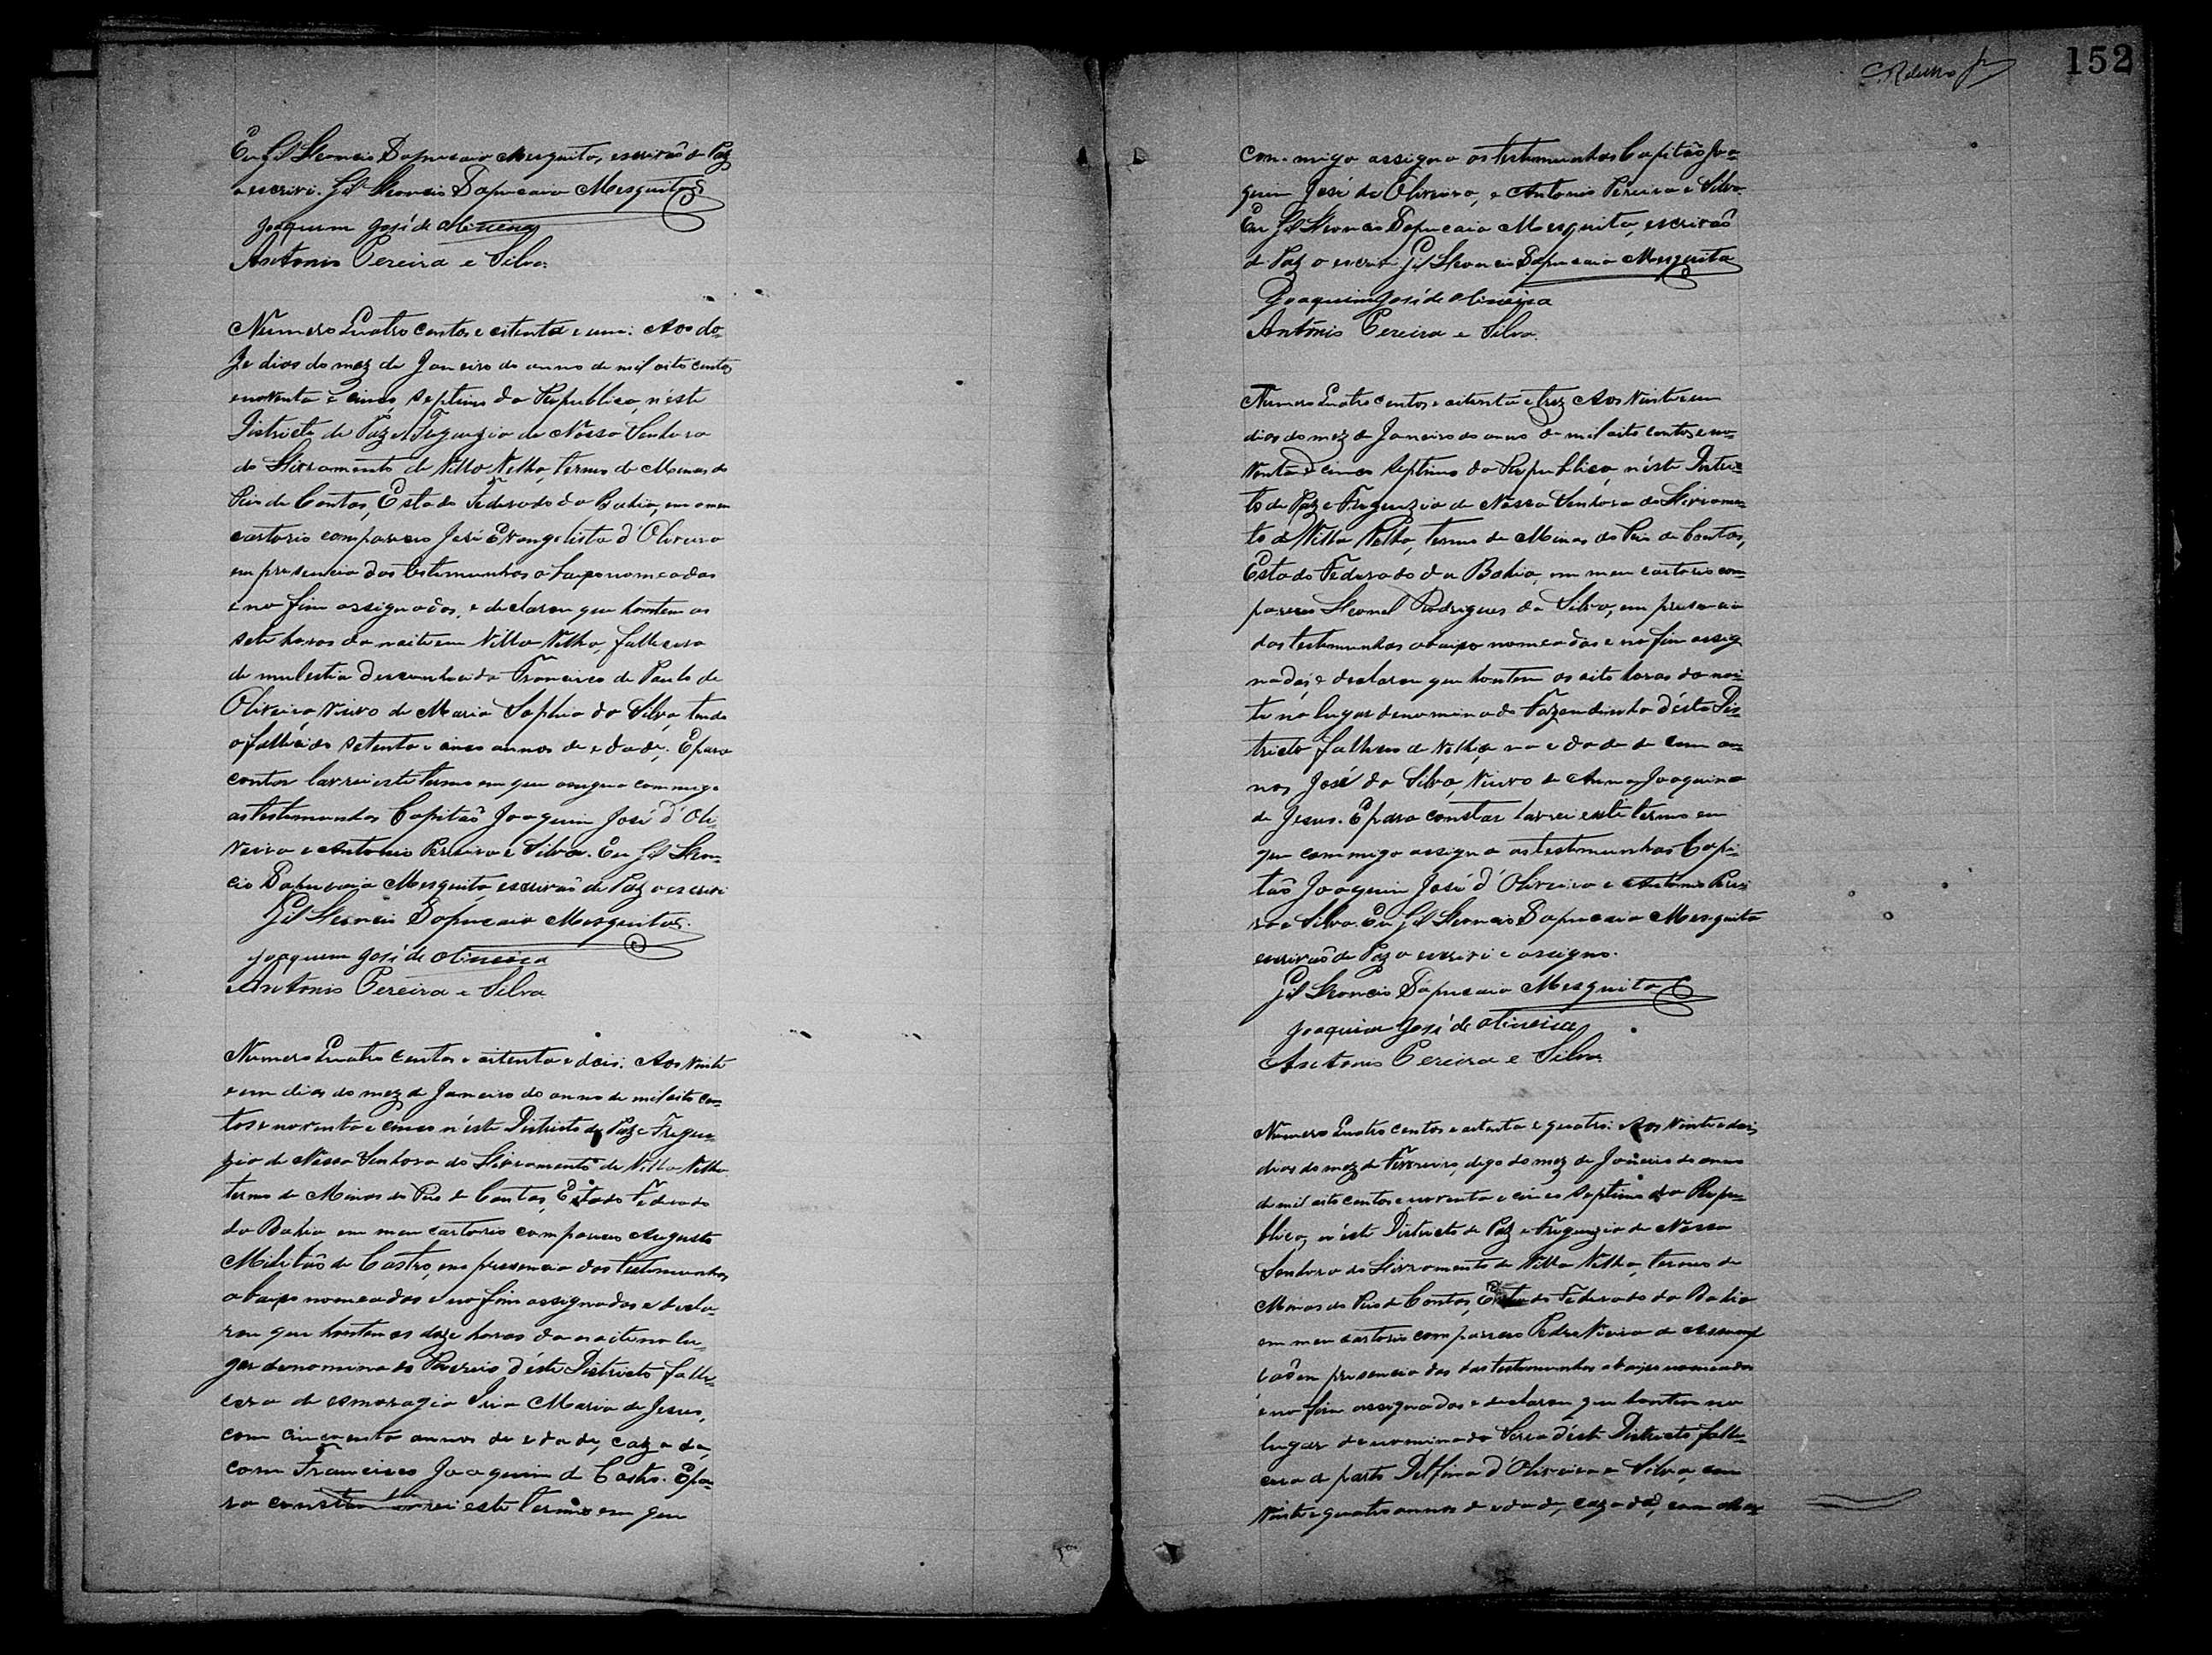 Eu Gil Leoncio Sapucaia Mesquita, escrivão de Paz
o escrivi. Gil Leoncio Sapucaia Mesquita
Joaquim José de Oliveira
Antonio Pereira e Silva.
Numero Quatro centos e oitenta e um: Aos do-
ze dias do mez de Janeiro do anno de mil oito centos
e noventa e cinco, septimo da Republica, n'este
Districto de Paz e Freguezia de Nossa Senhora
do Livramento de Villa Velha, termo de Minas do
Rio de Contas, Estado Federado da Bahia, em o meu
cartorio compareceo José Evangelista d'Oliveira
em presencia das testemunhas abaixo nomeadas
e no fim assignados, e declarou que hontem as
sete horas da noite em Villa Velha, fallecera
de mulestia desconhecida Francisco de Paula de
Oliveira viuvo de Maria Sophia da Silva, tendo
o fallecido setenta e cinco annos de edade. E para
contar lavrei este termo em que assigna commigo
as testemunhas Capitão Joaquim José d'Oli-
veira e Antonio Pereira e Silva. Eu Gil Leon-
cio Sapucaia Mesquita, escrivão de Paz o escrivi
Gil Leoncio Sapucaia Mesquita.
Joaquim José de Oliveira
Antonio Pereira e Silva
Numero Quatro centos e oitenta e dois: Aos vinte
e um dias do mez de Janeiro do anno de mil oito cen-
tos e noventa e cinco n'este Districto de Paz e Fregue-
zia de Nossa Senhora do Livramento de Villa Velha
termo de Minas do Rio de Contas, Estado Federado
da Bahia em meu cartorio compareceo Augusto
Militão de Castro, em presencia das testemunhas
abaixo nomeadas e no fim assignados e decla-
rou que hontem as doze horas da noite no lu-
gar denominado d'este Districto falle-
cera de Maria de Jesus,
com cincoenta annos de edade, cazada,
com Francisco Joaquim de Castro. E pa-
ra constar lavrei este termo em que
152
com-migo assigna as testemunhas Capitão Joa-
quim José de Oliveira, e Antonio Pereira e Silva.
Eu Gil Leoncio Sapucaia Mesquita, escrivão
de Paz o escrivi Gil Leoncio Sapucaia Mesquita
Joaquim José de Oliveira
Antonio Pereira e Silva.
Numero Quatro centos e oitenta e trez Aos vinte e um
dias do mez de Janeiro do anno de mil oito centos e no-
venta e cinco septimo da Republica, n'éste Distric-
to de Paz e Freguezia de Nossa Senhora do Livramen-
to de Villa Velha, termo de Minas do Rio de Contas,
Estado Federado da Bahia, em meu cartorio com-
pareceu Leonel Rodrigues da Silva, em presencia
das testemunhas abaixo nomeadas e no fim assig
nadas e declarou que hontem as oito horas da noi-
te no lugar denominado Fazendinha d'éste Dis-
tricto falleceu de velhice na edade de cem an-
nos José da Silva, viuvo de Anna Joaquina
de Jesus. E para constar lavrei este termo em
que commigo assigna as testemunhas Capi-
tão Joaquim José d'Oliveira e Antonio Perei
ra e Silva. Eu Gil Leoncio Sapucaia Mesquita
escrivão de Paz o escrivi e assigno.
Gil Leoncio Sapucaia Mesquita
Joaquim José de Oliveira
Antonio Pereira e Silva.
Numero Quatro centos e oitenta e quatro: Aos vinte e dois
dias do mez de Fevereiro, digo do mez de Janeiro do anno
de mil oito centos e noventa e cinco septimo da Repu-
blica, n'éste Districto de Paz e Freguezia de Nossa
Senhora do Livramento de Villa Velha, termo de
Minas do Rio de Contas, Estado Federado da Bahia
em meu cartorio compareceo Pedro Vieira de Assump
ção em presencia das das testemunhas abaixo nomeadas
e no fim assignadas e declarou que hontem no
lugar denominado d'éste Districto falle-
cera de parto Delfina d'Oliveira e Silva, com
vinte e quatro annos de edade, cazada, com